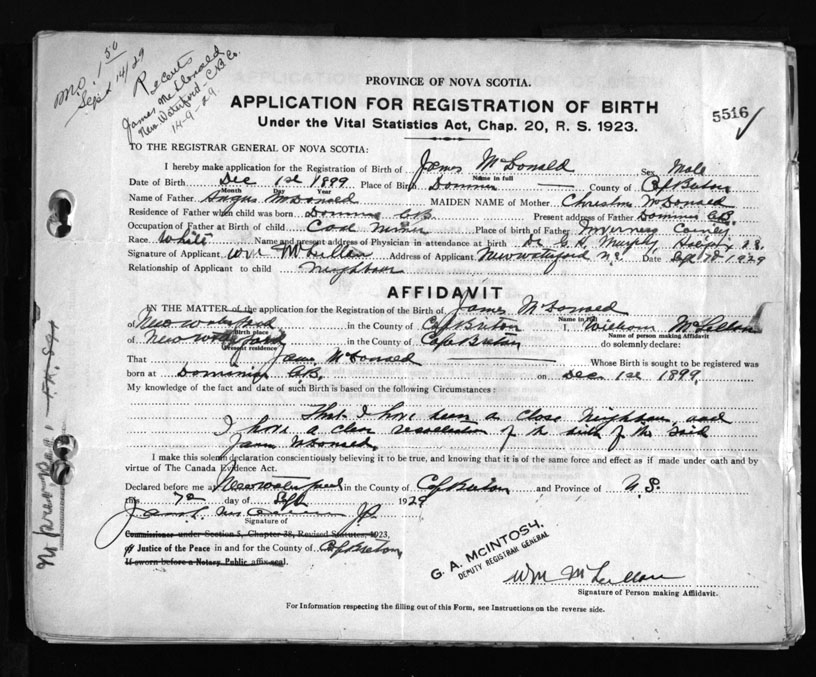 MO. 1.50
Sept 14/29
James McDonald
New Waterford - C.B. Co.
14-9-29
PROVINCE OF NOVA SCOTIA.
APPLICATION FOR REGISTRATION OF BIRTH
5516
Under the Vital Statistics Act, Chap. 20, R. S. 1923.
TO THE REGISTRAR GENERAL OF NOVA SCOTIA:
I hereby make application for the Registration of Birth of James McDonald Sex Male
Name in full
Date of Birth Dec 1st 1899 Place of Birth Dominion County of Cape Breton
Month Day Year
Name of Father Angus McDonald MAIDEN NAME of Mother McDonald
Residence of Father when child was born Dominion C.B. Present address of Father Dominion C.B.
Occupation of Father at Birth of child Coal Miner Place of birth of Father Inverness County
Race White Name and present address of Physician in attendance at birth Dr. G. H. Murphy Halifax N.S.
Signature of Applicant Wm McLellan Address of Applicant New Waterford N.S. Date Sept 7th 1929
Relationship of Applicant to child Neighbour
AFFIDAVIT
IN THE MATTER of the application for the Registration of the Birth of James McDonald
Name in full
of New Waterford in the County of Cape Breton I, William McLellan
Birth place Name of person making Affidavit
of New Waterford in the County of Cape Breton do solemnly declare:
Present residence
That James McDonald Whose Birth is sought to be registered was
born at Dominion C.B. on Dec 1st 1899.
My knowledge of the fact and date of such Birth is based on the following Circumstances:
That I have been a close neighbour, and
I have a clear recollection of the birth of the said
James McDonald.
I make this solemn declaration conscientiously believing it to be true, and knowing that it is of the same force and effect as if made under oath and by
virtue of The Canada Evidence Act.
Declared before me at New Waterford in the County of Cape Breton and Province of N.S.
this 7th day of Sept 1929
James JP.
Signature of
Commissioner under Section 5, Chapter 38, Revised Statutes, 1923,
Justice of the Peace in and for the County of Cape Breton
If sworn before a Notary Public affix seal.
G. A. McINTOSH,
DEPUTY REGISTRAR GENERAL
Wm McLellan
Signature of Person making Affidavit.
For Information respecting the filling out of this Form, see Instructions on the reverse side.